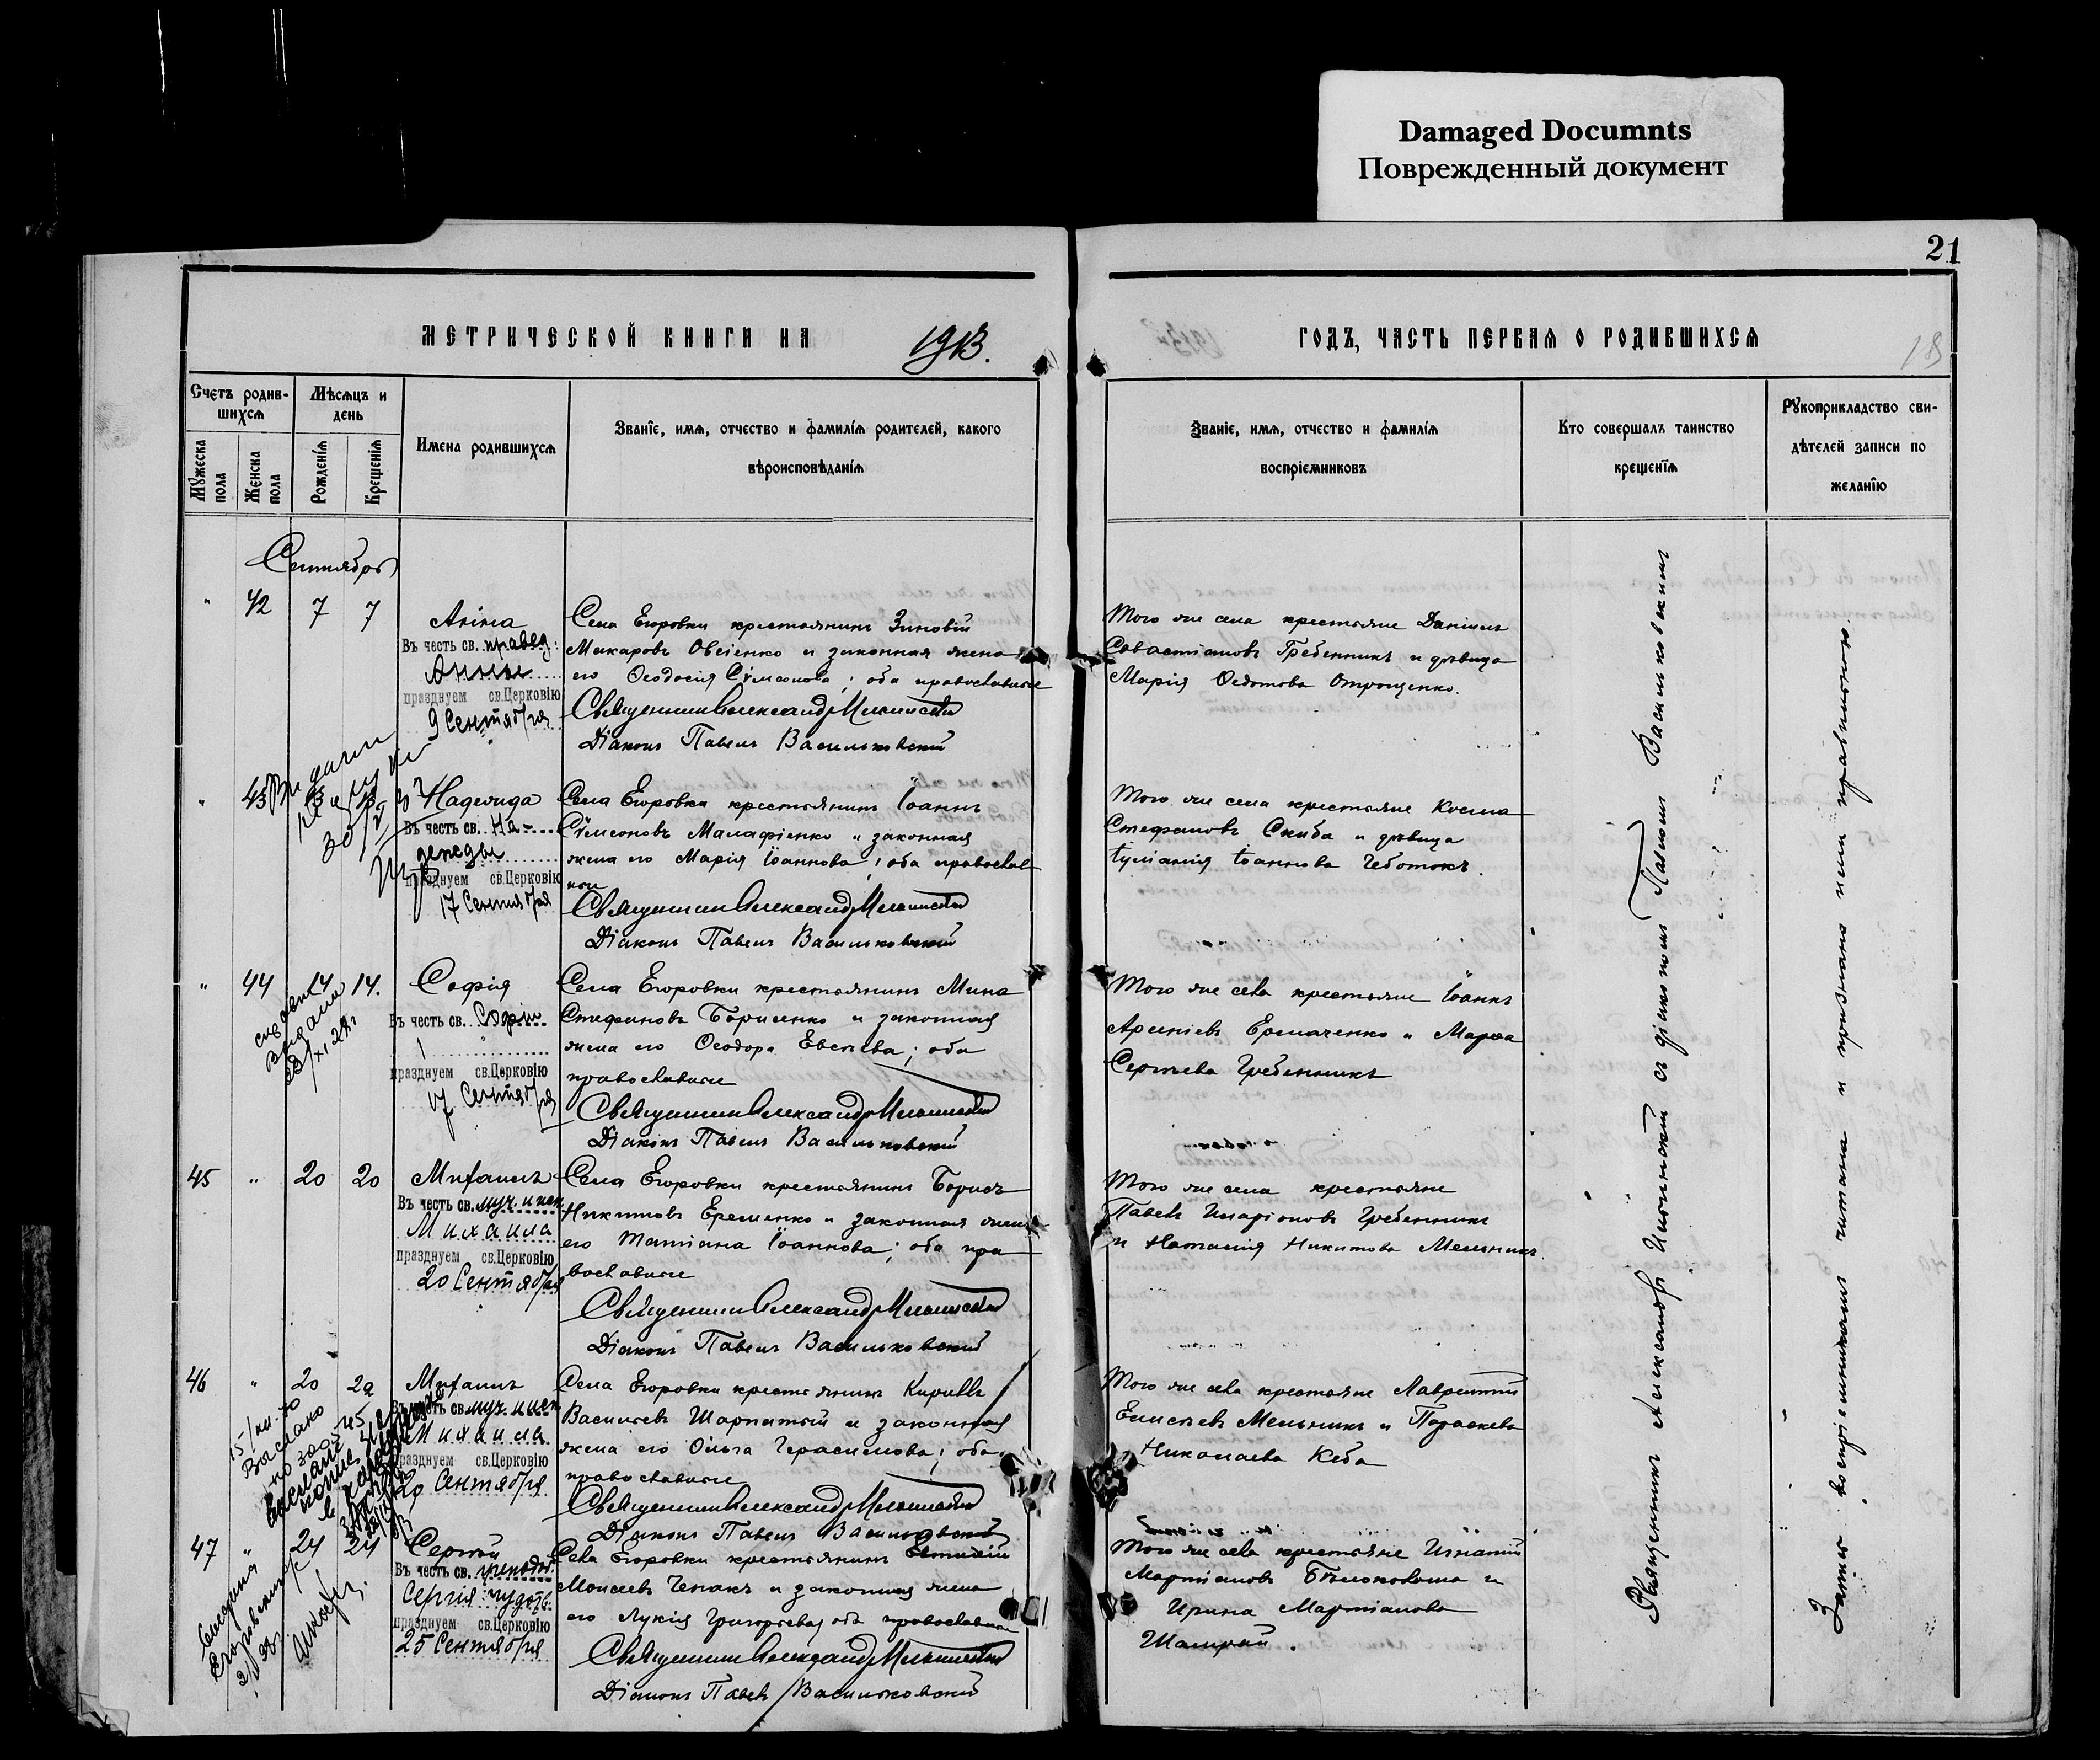 Damaged Documnts
Поврежденный документ
21
МЕТРИЧЕСКОЙ КНИГИ НА 1913.
ГОДЪ, ЧАСТЬ ПЕРВАЯ О РОДИВШИХСЯ
18
Счетъ родив-
шихся
Мужеска пола
Женска пола
Мѣсяцъ и
день
Рожденія
Крещенія
Имена родившихся
Званіе, имя, отчество и фамилія родителей, какого
вѣроисповѣданія
Званіе, имя, отчество и фамилія
воспріемниковъ
Кто совершалъ таинство
крещенія
Рукоприкладство сви-
дѣтелей записи по
желанію
Сентябрь
" 42 7 7
Анна
Въ честь св. правед:
Анны
празднуем св.Церковію
9 Сентября
Села Егоровки крестьянинъ Зиновій
Макаровъ Овсіенко и законная жена
его Ѳеодосія Сѵмеонова; оба православные
Священникъ Александръ
Діаконъ Павелъ Васильковскій
Того же села крестьяне Даніилъ
Савастіановъ Гребенникъ и дѣвица
Марія Ѳедотова Отрощенко.
" 43
Надежда
Въ честь св. На-
дежды
празднуем св.Церковію
17 Сентября
Села Егоровки крестьянинъ Іоаннъ
Сѵмеоновъ Малафіенко и законная
жена его Марія Іоаннова; оба православ
ные
Священникъ Александръ
Діаконъ Павелъ Васильковскій
Того же села крестьяне Косма
Стефановъ Скиба и дѣвица
Іуліанія Іоаннова Чеботокъ.
" 44 14 14.
Софія
Въ честь св. Софіи
празднуем св.Церковію
17 Сентября
Села Егоровки крестьянинъ Мина
Стефановъ Борисенко и законная
жена его Ѳеодора Евсѣева; оба
православные
Священникъ Александръ
Діаконъ Павелъ Васильковскій
Того же села крестьяне Іоаннъ
Арсеніевъ Ермаченко и Марѳа
Сергѣева Гребенникъ
45 " 20 20
Михаилъ
Въ честь св. муч. и исп.
Михаила
празднуем св.Церковію
20 Сентября
Села Егоровки крестьянинъ Борисъ
Никитовъ Еременко и законная жена
его Татіана Іоаннова; оба пра
вославные
Священникъ Александръ
Діаконъ Павелъ Васильковскій
Того же села крестьяне
Павелъ Иларіоновъ Гребенникъ
и Наталія Никитова Мельникъ.
46 " 20 22
Михаилъ
Въ честь св. муч. и исп.
Михаила
празднуем св.Церковію
20 Сентября
Села Егоровки крестьянинъ Кириллъ
Васильевъ Шарпатый и законная
жена его Ольга Герасимова; оба
православные
Священникъ Александръ
Діаконъ Павелъ Васильковскій
Того же села крестьяне Лаврентій
Елисѣевъ Мельникъ и Параскева
Николаева Кеба
47 " 24 24
Сергій
Въ честь св. преподоб.
Сергія чудотв.
празднуем св.Церковію
25 Сентября
Села Егоровки крестьянинъ Евтихій
Моисеевъ Чепакъ и законная жена
его Лукія Григорьева; оба православные
Священникъ Александръ
Діаконъ Павелъ Васильковскій
Того же села крестьяне Игнатій
Мартіановъ Бѣлоковаша и
Ирина Мартіанова
Священникъ Александръ съ діакономъ Павломъ Васильковскимъ
Запись воспріемниками читана и признана ими правильною.